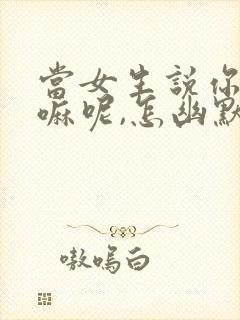 當女生說你
嘛呢,怎幽默
嗷嗚白